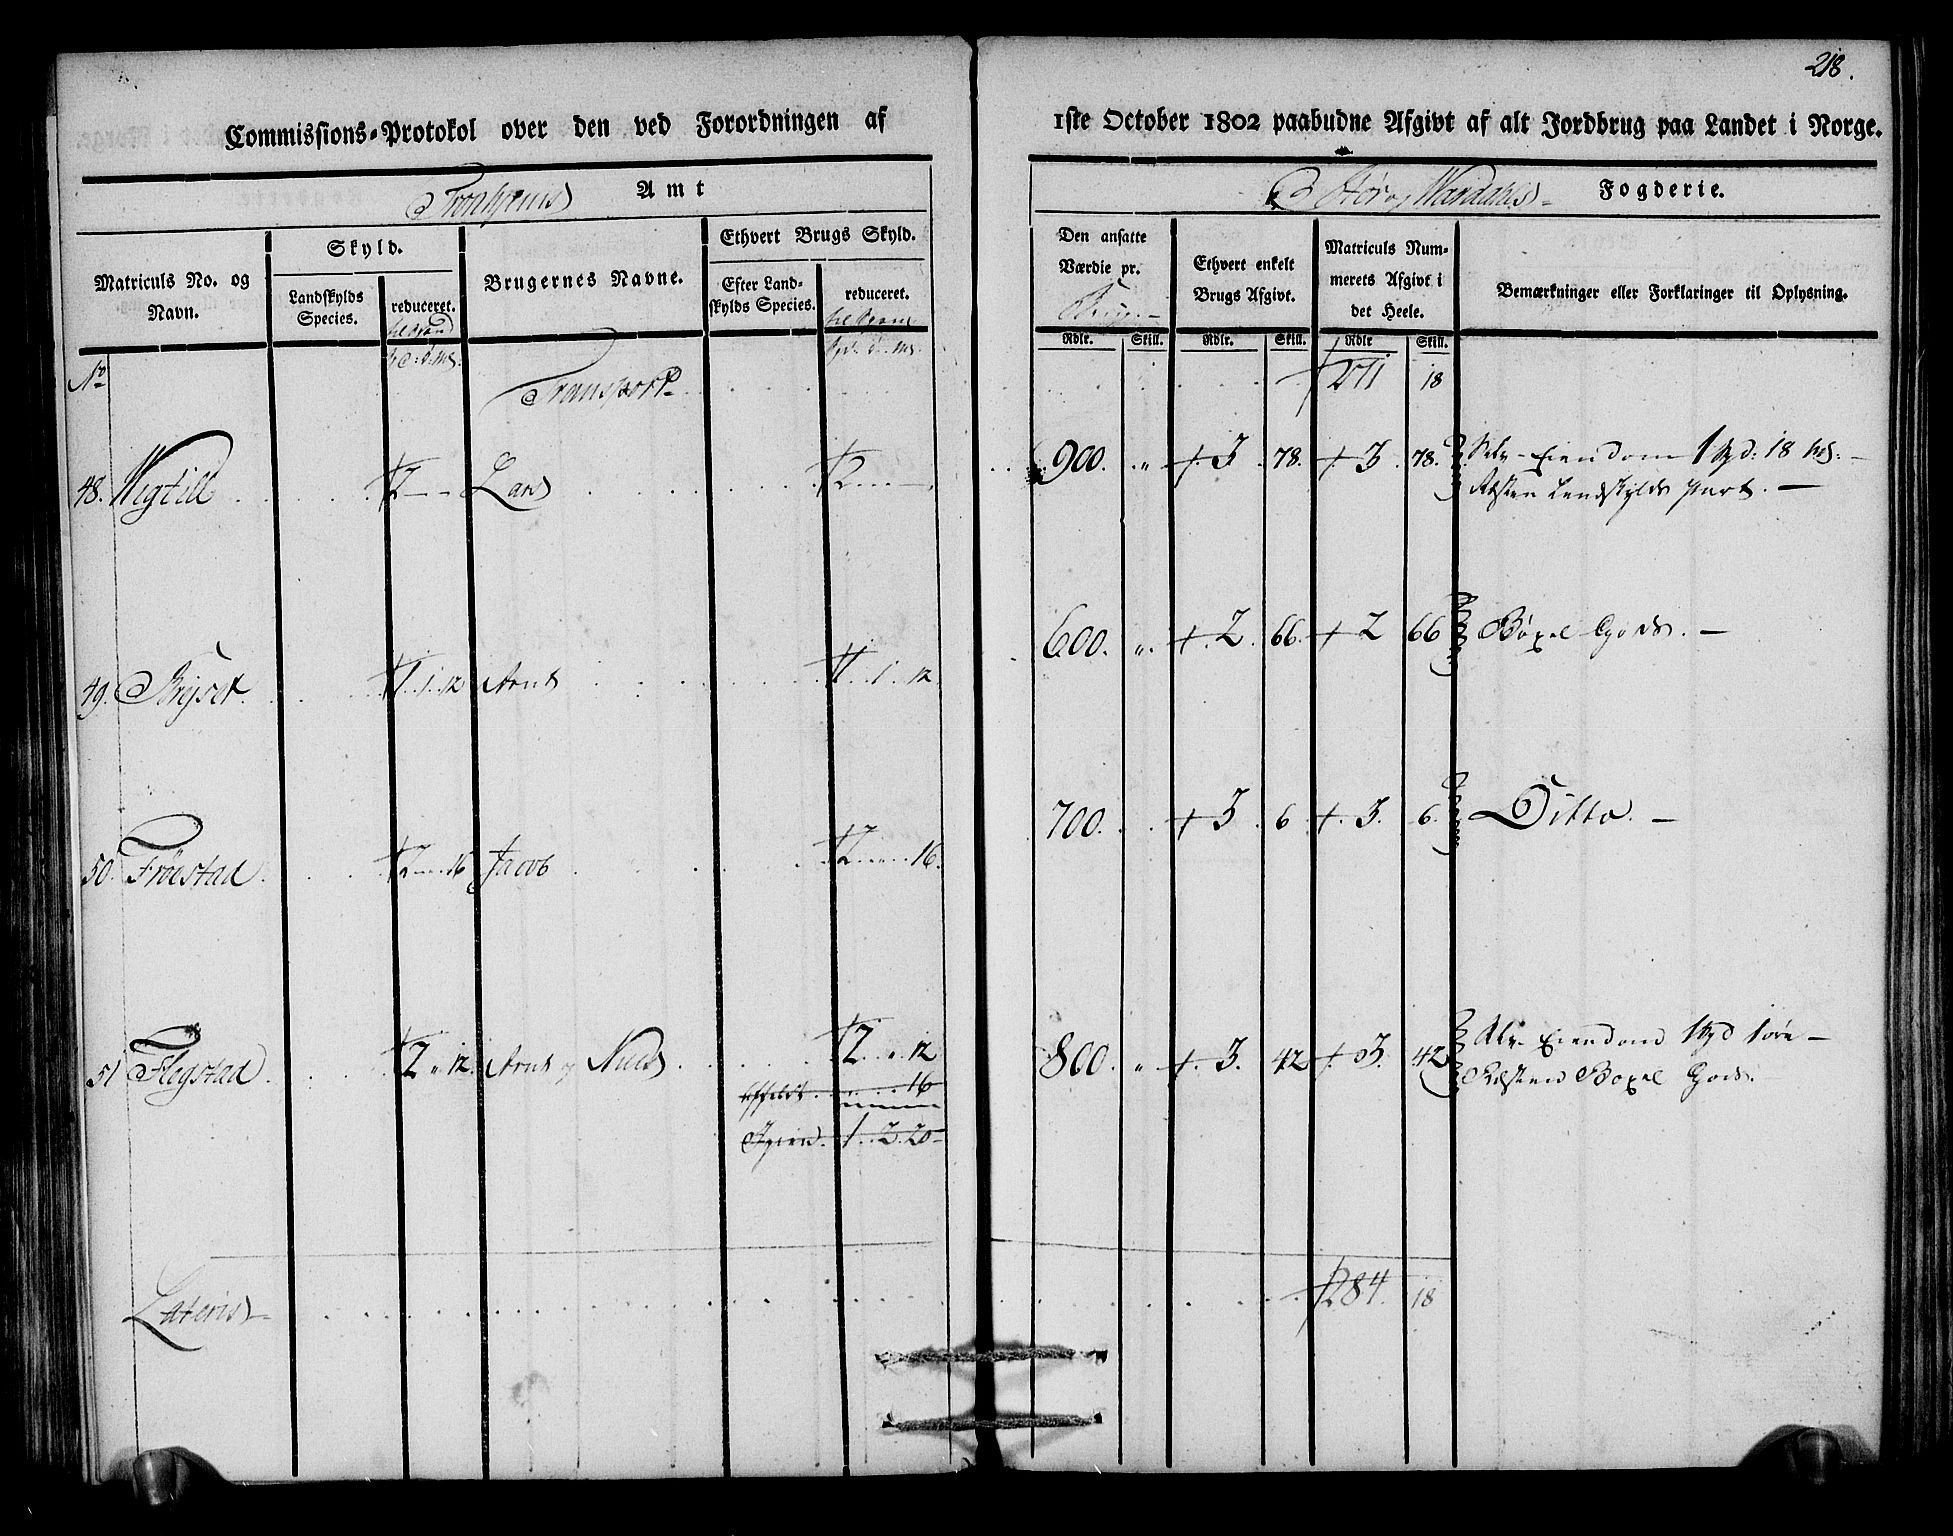 218.
Commissions-Protokol over den ved Forordningen af 1ste October 1802 paabudne Afgivt af alt Jordbrug paa Landet i Norge.
Tronhjems Amt
Stør og Værdahls Fogderie.
Matriculs No. og Navn.
Skyld.
Landskylds Species.
reduceret.
Brugernes Navne.
Ethvert Brugs Skyld.
Efter Landskylds Species.
reduceret.
Den ansatte Værdie pr.
Ethvert enkelt Brugs Afgivt.
Matriculs Nummerets Afgivt i det Heele.
Bemærkninger eller Forklaringer til Oplysning.
Rdlr. Skill. Rdlr. Skill. Rdlr Skill.
No
Transport 271 18
48. Wigtill 2 - - Lars 2 - - 900. " 3 78. 3 78. Selv-Eiendom 1 Spd: 18 ml: -
Resten Landskylds Part. -
49. 1. 1. 12 Arnt 1. 1. 12 600. " 2 66. 2 66 Böxel Gods. -
50. Fröestad 2 " 16 Jacob 2 " 16. 700. 3 6 3. 6. Ditto. -
51 Flegstad 2 " 12. Arnt og Niels 2 " 12 800. " 3. 42 3. 42 Selv-Eiendom 1 Spd 1 öre -
Resten Boxel Gods.
16
1. 2. 20
Lateris 284. 18